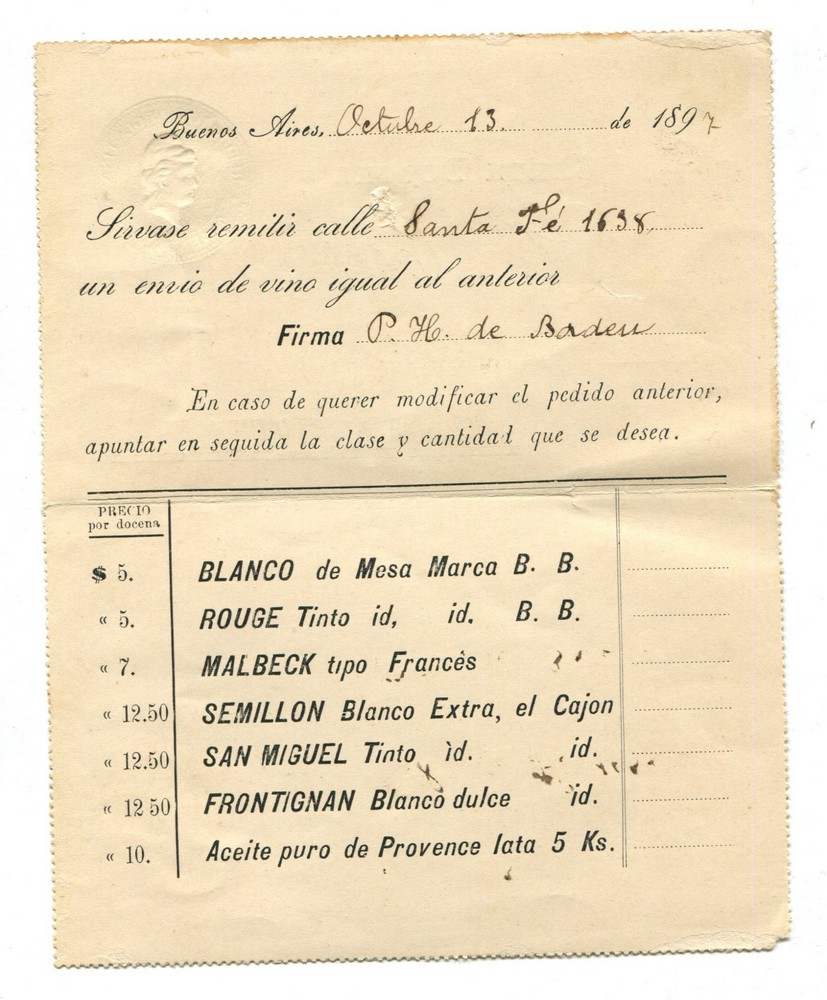 Buenos Aires, Octubre 13. de 1897
Sirvase remitir calle Santa Fé 1638
un envio de vino igual al anterior
Firma P. H. de Baden
En caso de querer modificar el pedido anterior,
apuntar en seguida la clase y cantidad que se desea.
PRECIO
por docena
$ 5. BLANCO de Mesa Marca B. B.
« 5. ROUGE Tinto id, id. B. B.
« 7. MALBECK tipo Francès
« 12.50 SEMILLON Blanco Extra, el Cajon
« 12.50 SAN MIGUEL Tinto id. id.
« 12 50 FRONTIGNAN Blanco dulce id.
« 10. Aceite puro de Provence lata 5 Ks.